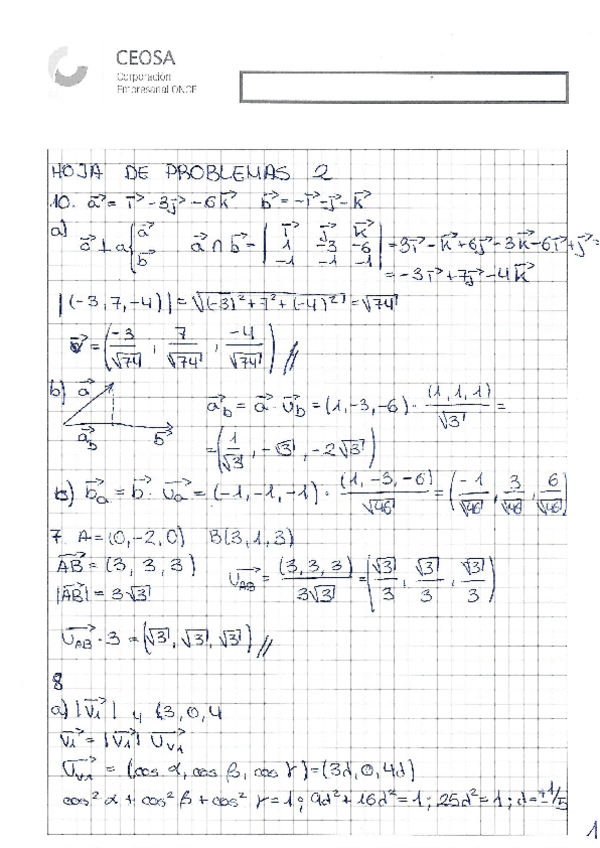 CEOSA
Corporación
Empresarial ONCE
HOJA DE PROBLEMAS 2
10. a⃗ = i⃗ - 3j⃗ - 6k⃗   b⃗ = -i⃗ - j⃗ - k⃗
a) ⊥ a { a⃗ b⃗   a⃗ ∧ b⃗ = | i⃗ j⃗ k⃗ ; 1 -3 -6 ; -1 -1 -1 | = 3i⃗ - k⃗ + 6j⃗ - 3k⃗ - 6i⃗ + j⃗ =
= -3i⃗ + 7j⃗ - 4k⃗
|(-3, 7, -4)| = √((-3)² + 7² + (-4)²) = √74
= (-3/√74, 7/√74, -4/√74) //
b) a⃗   a⃗b = a⃗ · u⃗b = (1, -3, -6) · (1, 1, 1)/√3 =
a⃗b   b⃗   = (1/√3, -√3, -2√3)
c) b⃗a = b⃗ · u⃗a = (-1, -1, -1) · (1, -3, -6)/√46 = (-1/√46, 3/√46, 6/√46)
7. A = (0, -2, 0)   B(3, 1, 3)
AB⃗ = (3, 3, 3)   u⃗AB = (3, 3, 3)/3√3 = (√3/3, √3/3, √3/3)
|AB⃗| = 3√3
u⃗AB · 3 = (√3, √3, √3) //
8
a) |v⃗1| 4 {3, 0, 4
v⃗1 = |v⃗1| u⃗v1
u⃗v1 = (cos α, cos β, cos γ) = (3d, 0, 4d)
cos² α + cos² β + cos² γ = 1; 9d² + 16d² = 1; 25d² = 1; d = ±1/5
1